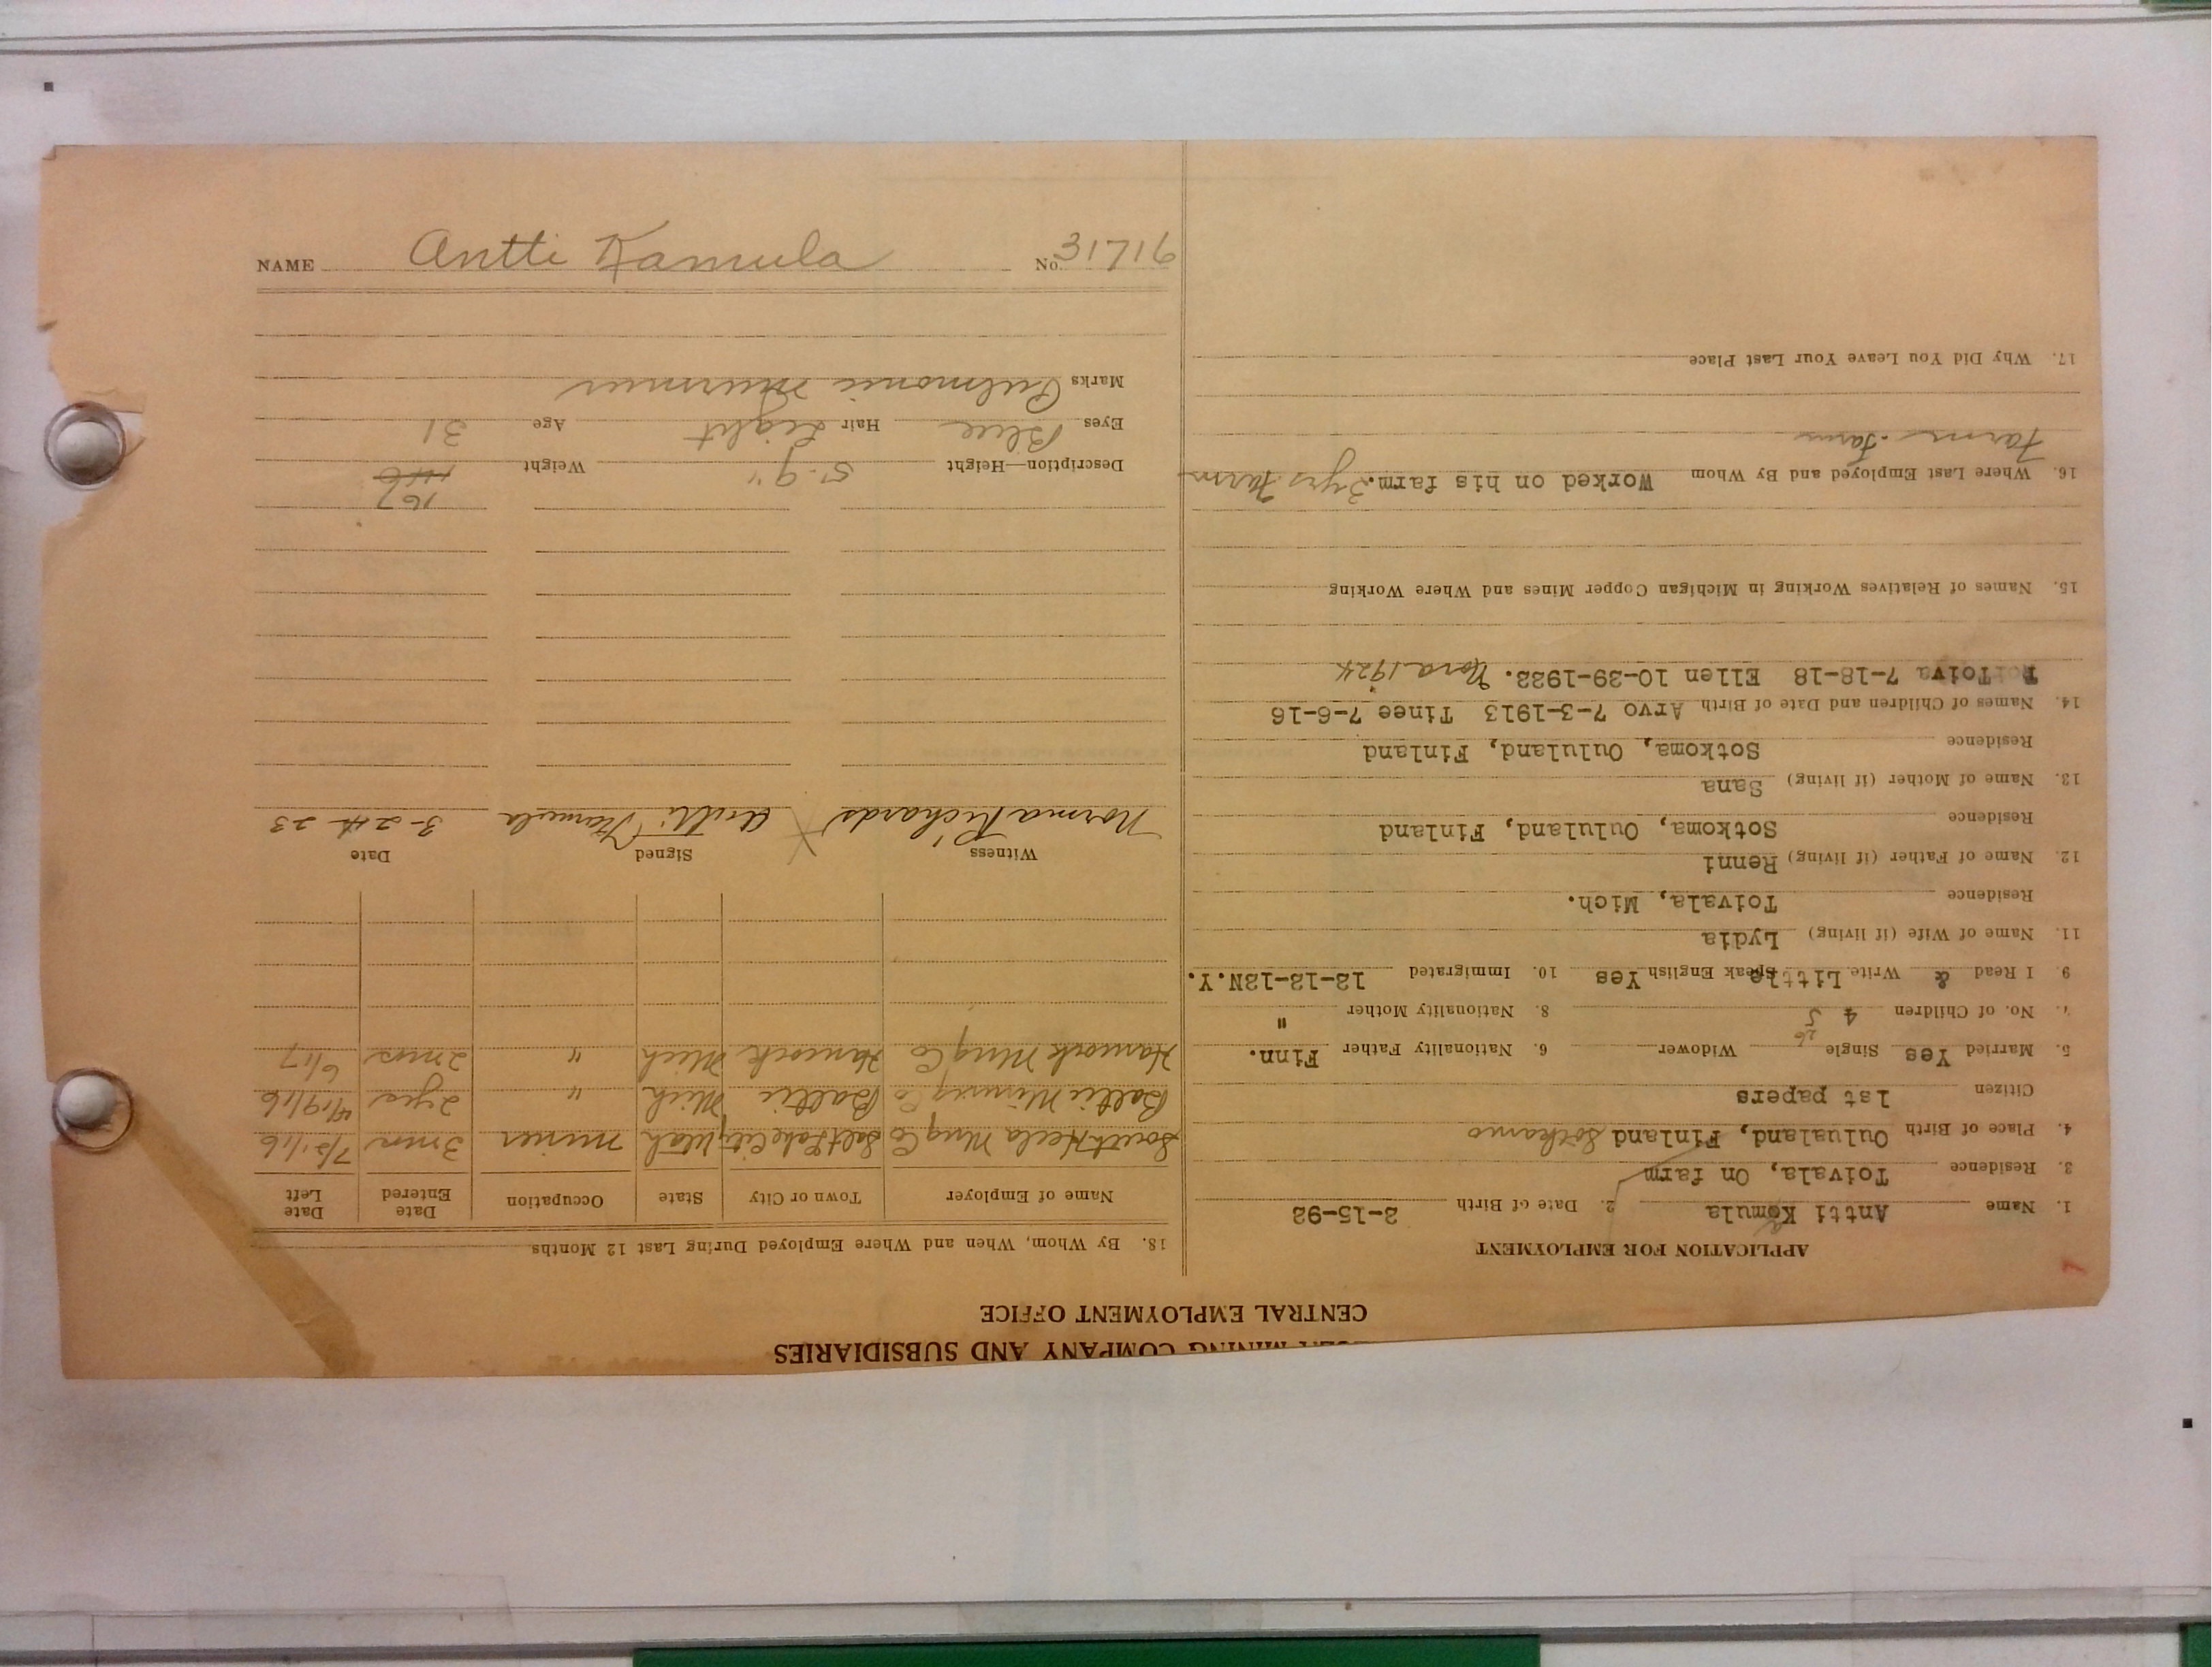 MINING COMPANY AND SUBSIDIARIES
CENTRAL EMPLOYMENT OFFICE
APPLICATION FOR EMPLOYMENT
1. Name Antti Kamula 2. Date of Birth 2-15-92
3. Residence Toivala, On farm
4. Place of Birth Oulualund, Finland Sotkamo
Citizen 1st papers
5. Married Yes Single Widower 6. Nationality Father Finn.
7. No. of Children 4 5 8. Nationality Mother "
9. I Read & Write Little Speak English Yes 10. Immigrated 12-12-12N.Y.
11. Name of Wife (if living) Lydia
Residence Toivala, Mich.
12. Name of Father (if living) Renni
Residence Sotkoma, Oululund, Finland
13. Name of Mother (if living) Sana
Residence Sotkoma, Oululund, Finland
14. Names of Children and Date of Birth Arvo 7-3-1913 Tinee 7-6-16
Toiva 7-18-18 Ellen 10-29-1922. Nora 1924
15. Names of Relatives Working in Michigan Copper Mines and Where Working
16. Where Last Employed and By Whom Worked on his farm. 3 yrs Farm
Farm - Farm
17. Why Did You Leave Your Last Place
18. By Whom, When and Where Employed During Last 12 Months
Name of Employer Town or City State Occupation Date Entered Date Left
South Hecla Mng Co Salt Lake City Utah miner 3 mon 7/21/16
Baltic Mining Co Baltic Mich " 2 yrs 4/19/16
Hancock Mng Co Hancock Mich " 2 mos 6/17
Witness Signed Date
Norma Richards X Antti Kamula 3-24-23
167
Description—Height 5'-9" Weight 146
Eyes Blue Hair Light Age 31
Marks Pulmonic murmur
NAME Antti Kamula No. 31716